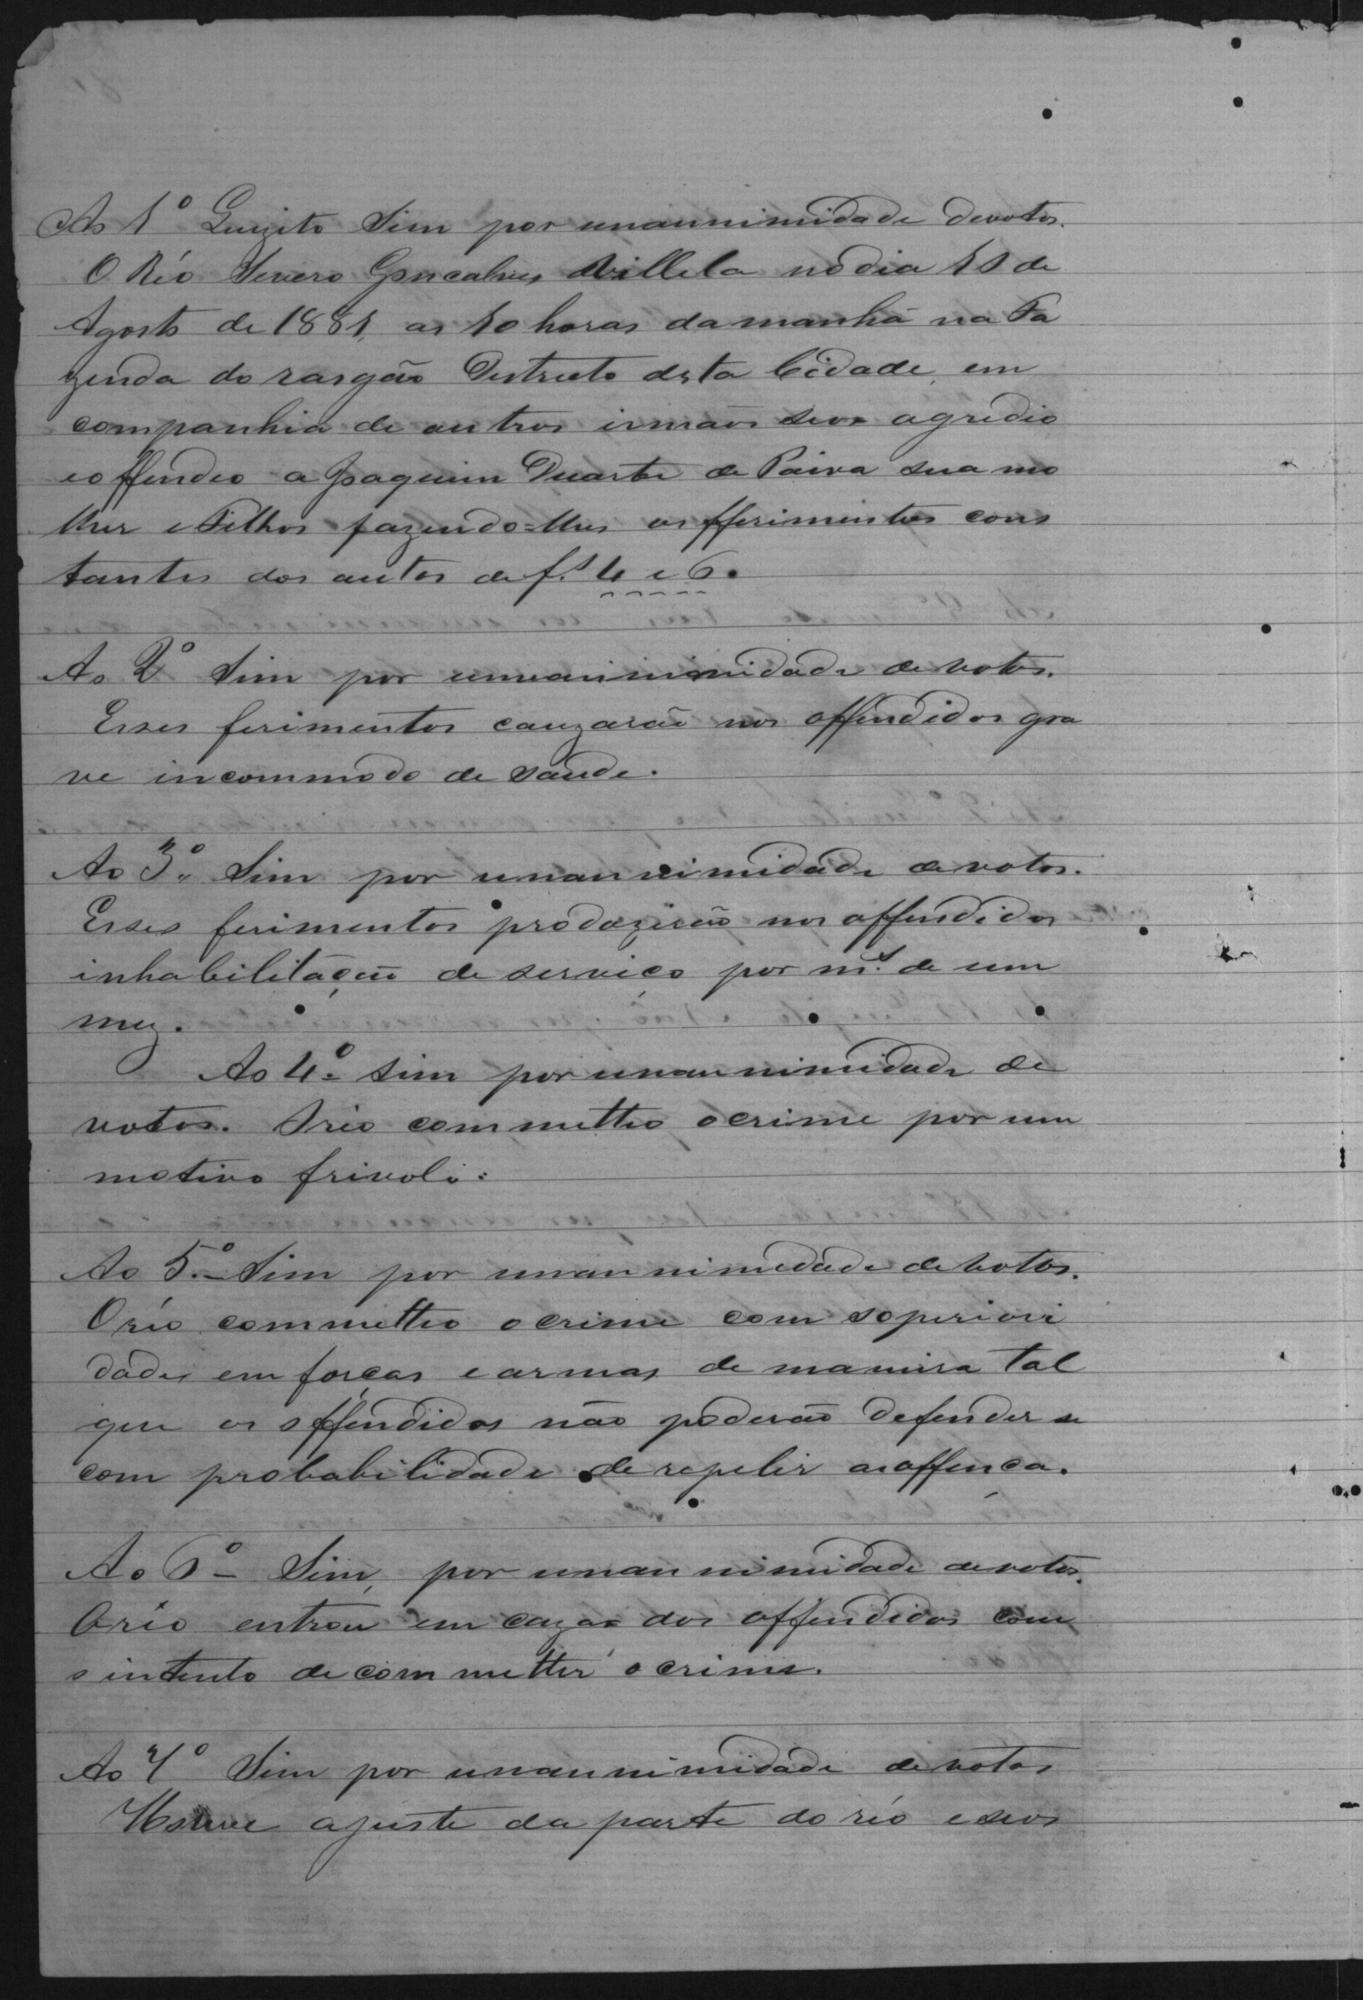 Ao 1º Quizito Sim por unannimidade devotos.
O Réo Severo Goncalves Villela no dia 10 de
Agosto de 1881, as 10 horas da manhã na Fa
zenda do rasgão Destricto desta Cidade, em
companhia de outros irmãos seos agredio
e offendeo a Joaquim Duarte de Paiva sua mo
lher e Filhos fazendo-lhes os fferimentos cons
tantes dos autos de f.s 4 e 6.
Ao 2º Sim por unnanimidade de votos.
Esses ferimentos cauzarão nos offendidos gra
ve incommodo de saude.
Ao 3º Sim por unannimidade de votos.
Esses ferimentos produzirão nos offendidos
inhabilitação de serviço por m.s de um
mez.
Ao 4º sim por unannimidade de
votos. O réo commetteo o crime por um
motivo frivolo:
Ao 5º Sim por unannimedade de votos.
O réo commetteo o crime com soperiori
dades em forças e armas, de maneira tal
que os offendidos não poderão defender se
com probabilidade de repelir a offença.
Ao 6º - Sim, por unannimidade de votos.
O réo entrou em caza dos offendidos com
o intento de commetter o crime.
Ao 7º Sim por unannimidade de votos
Houve ajuste da parte do réo e seos